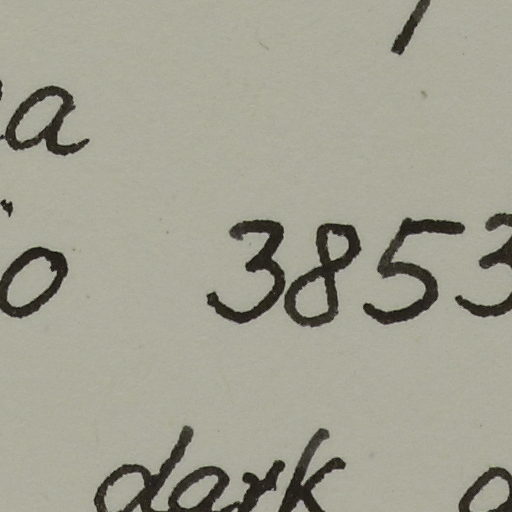 a
o 3853
dark